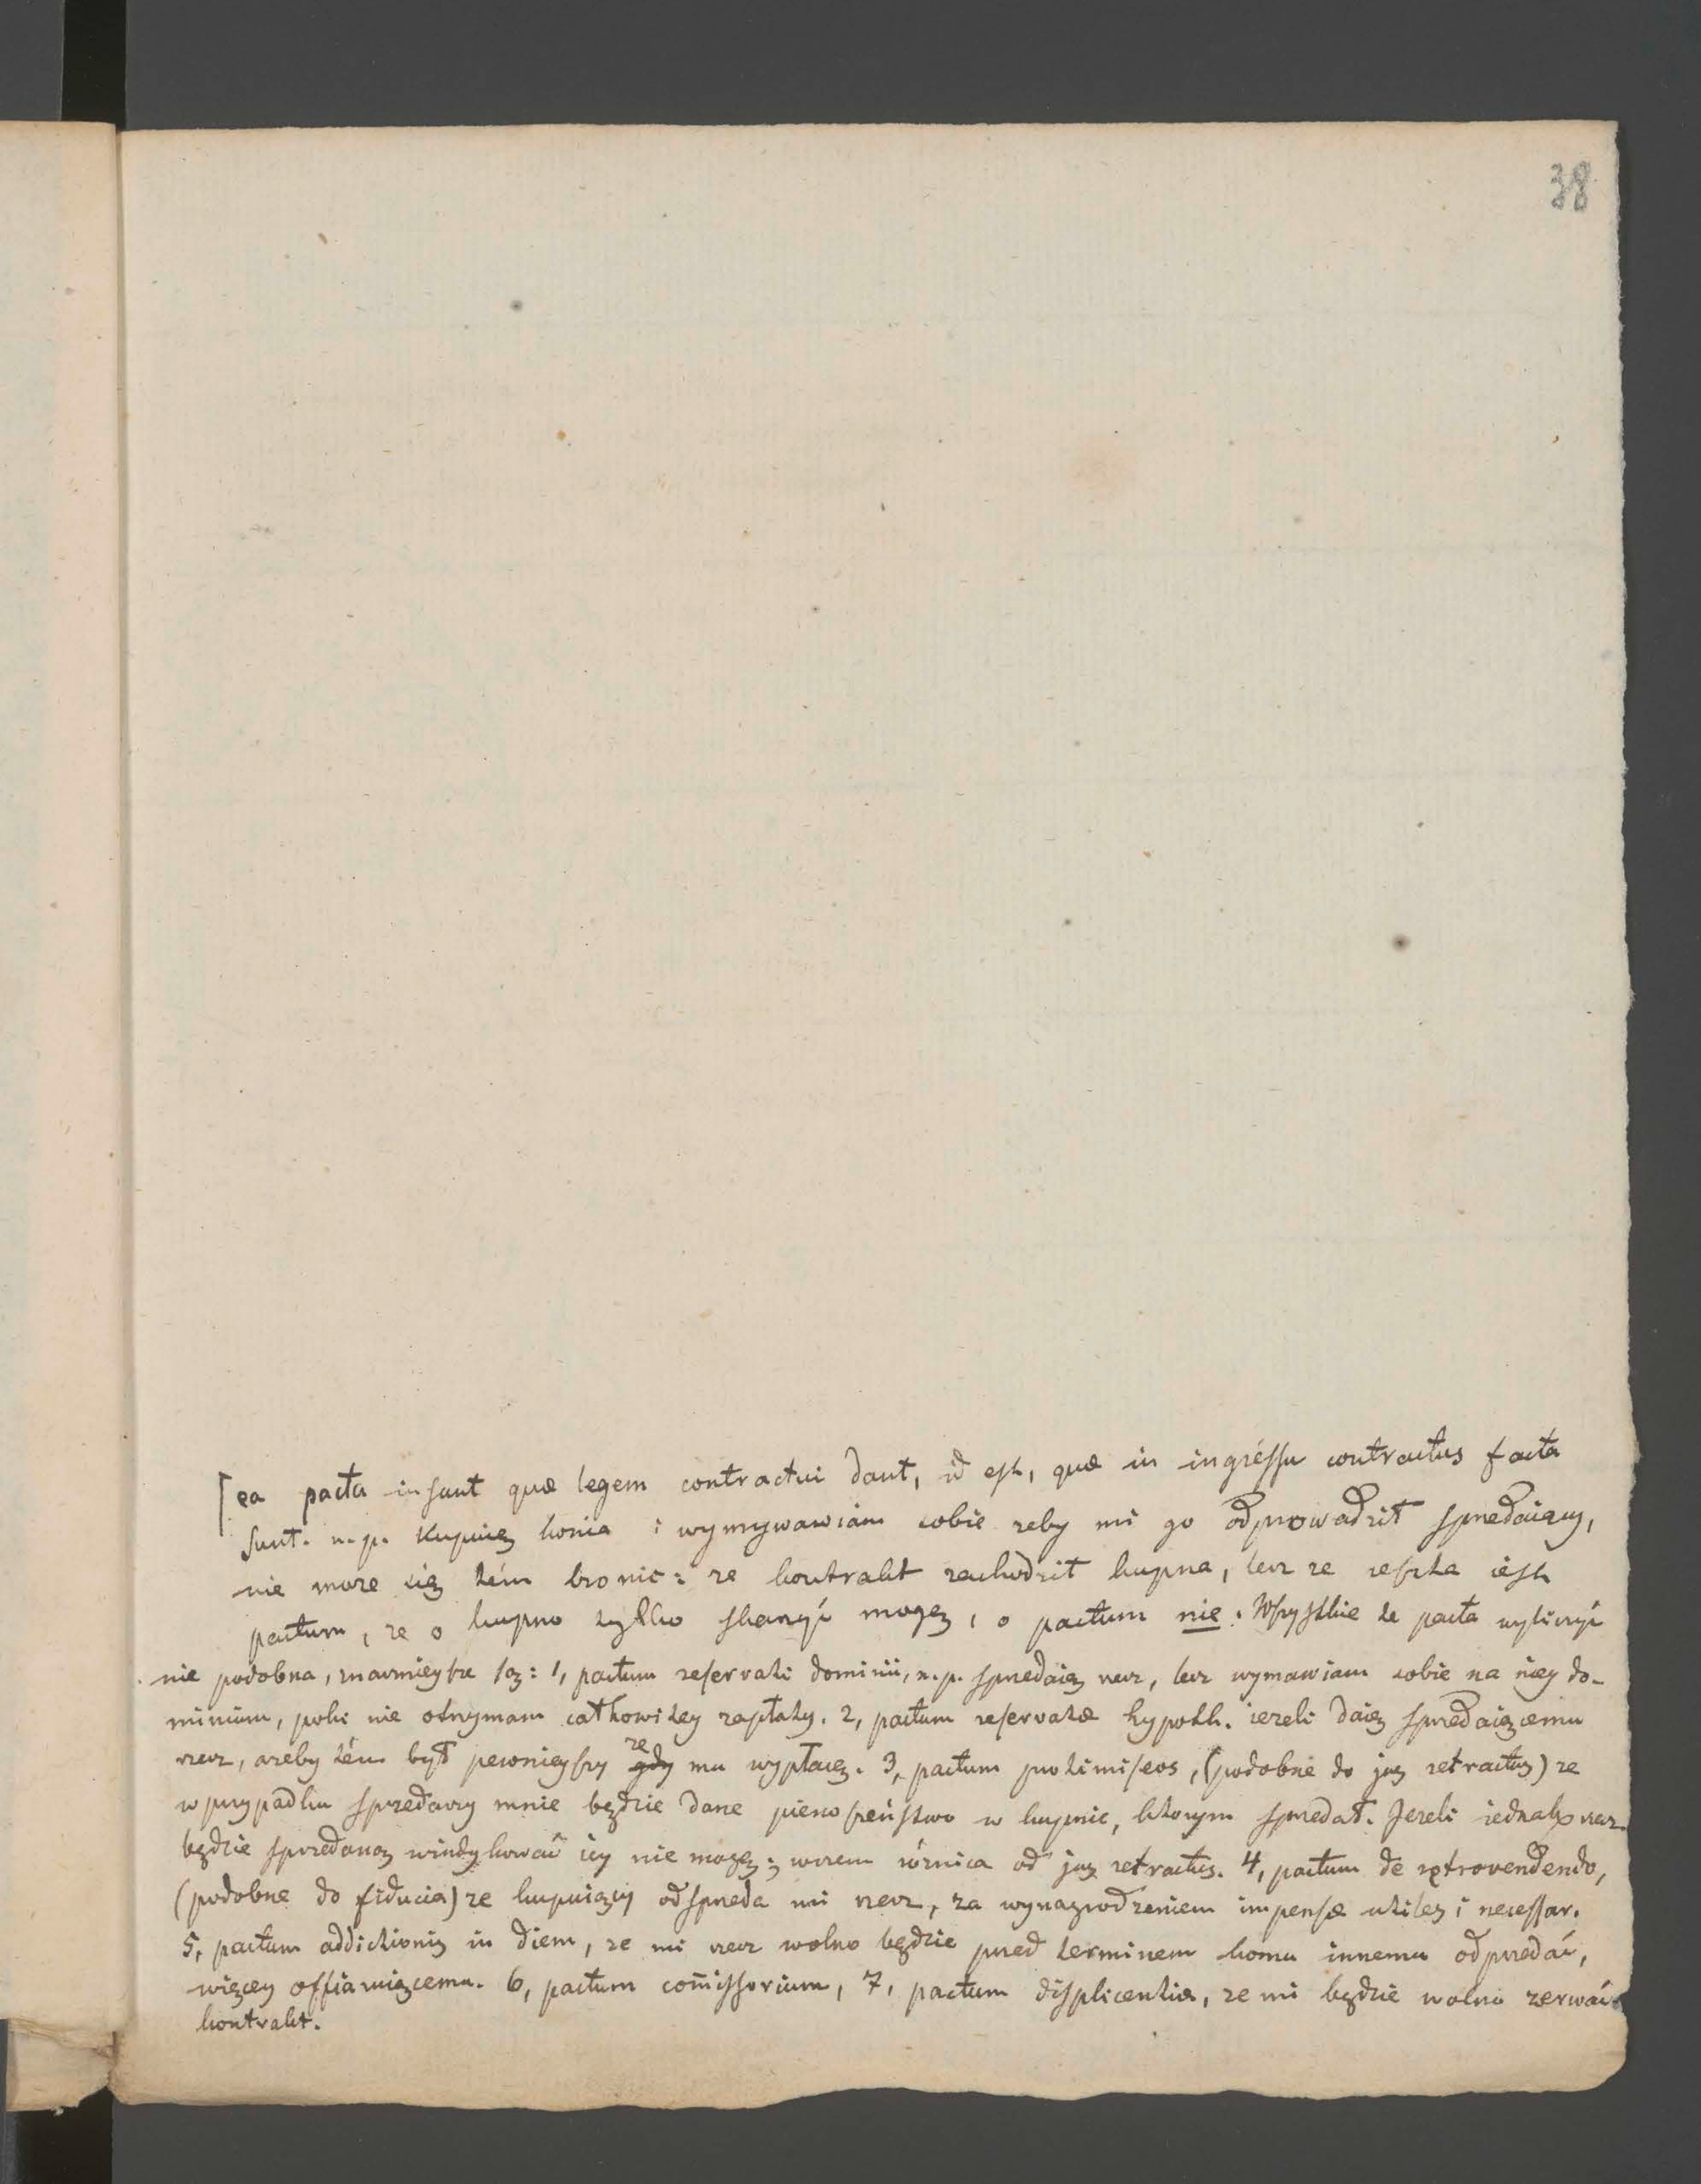 38
[ea pacta insunt quæ legem contractui dant, id est, quæ in ingréssu contractus facta
sunt. n.p. Kupuię konia i wymywawiam sobie zeby mi go odprowadził spredaiący,
nie moze się tém bronic: ze kontrakt zachodził kupna, lecz ze reszta iest
pactum, ze o kupno tylko skarzyć mogę, o pactum nie. Wszystkie te pacta wyliczyć
nie podobna, znacznieysze są: 1, pactum reservati dominii, n.p. spredaię rzecz, lecz wymawiam sobie na niey do-
minium, poki nie otrzymam całkowitey zapłaty. 2, pactum reservatæ hypoth. iezeli daię spredaiącemu
rzecz, azeby tém był pewnieyszy ze gdy mu wypłacę. 3, pactum protimiseos, (podobne do jus retractus) ze
w przypadku sprzedazy mnie będzie dane pierwszeństwo w kupnie, którym spredał. Jezeli iednak rzecz
będzie sprzedaną windykować iey nie mogę; w czem róznica od jus retractus. 4, pactum de retrovendendo,
(podobne do fiducia) ze kupuiący odspreda mi rzecz, za wynagrodzeniem impensæ utiles i necessar.
5, pactum addictionis in diem, ze mi rzecz wolno będzie pred terminem komu innemu odpredać,
więcey offiaruiącemu. 6, pactum com̄issorium, 7, pactum displicentiæ, ze mi będzie wolno zerwać
kontrakt.